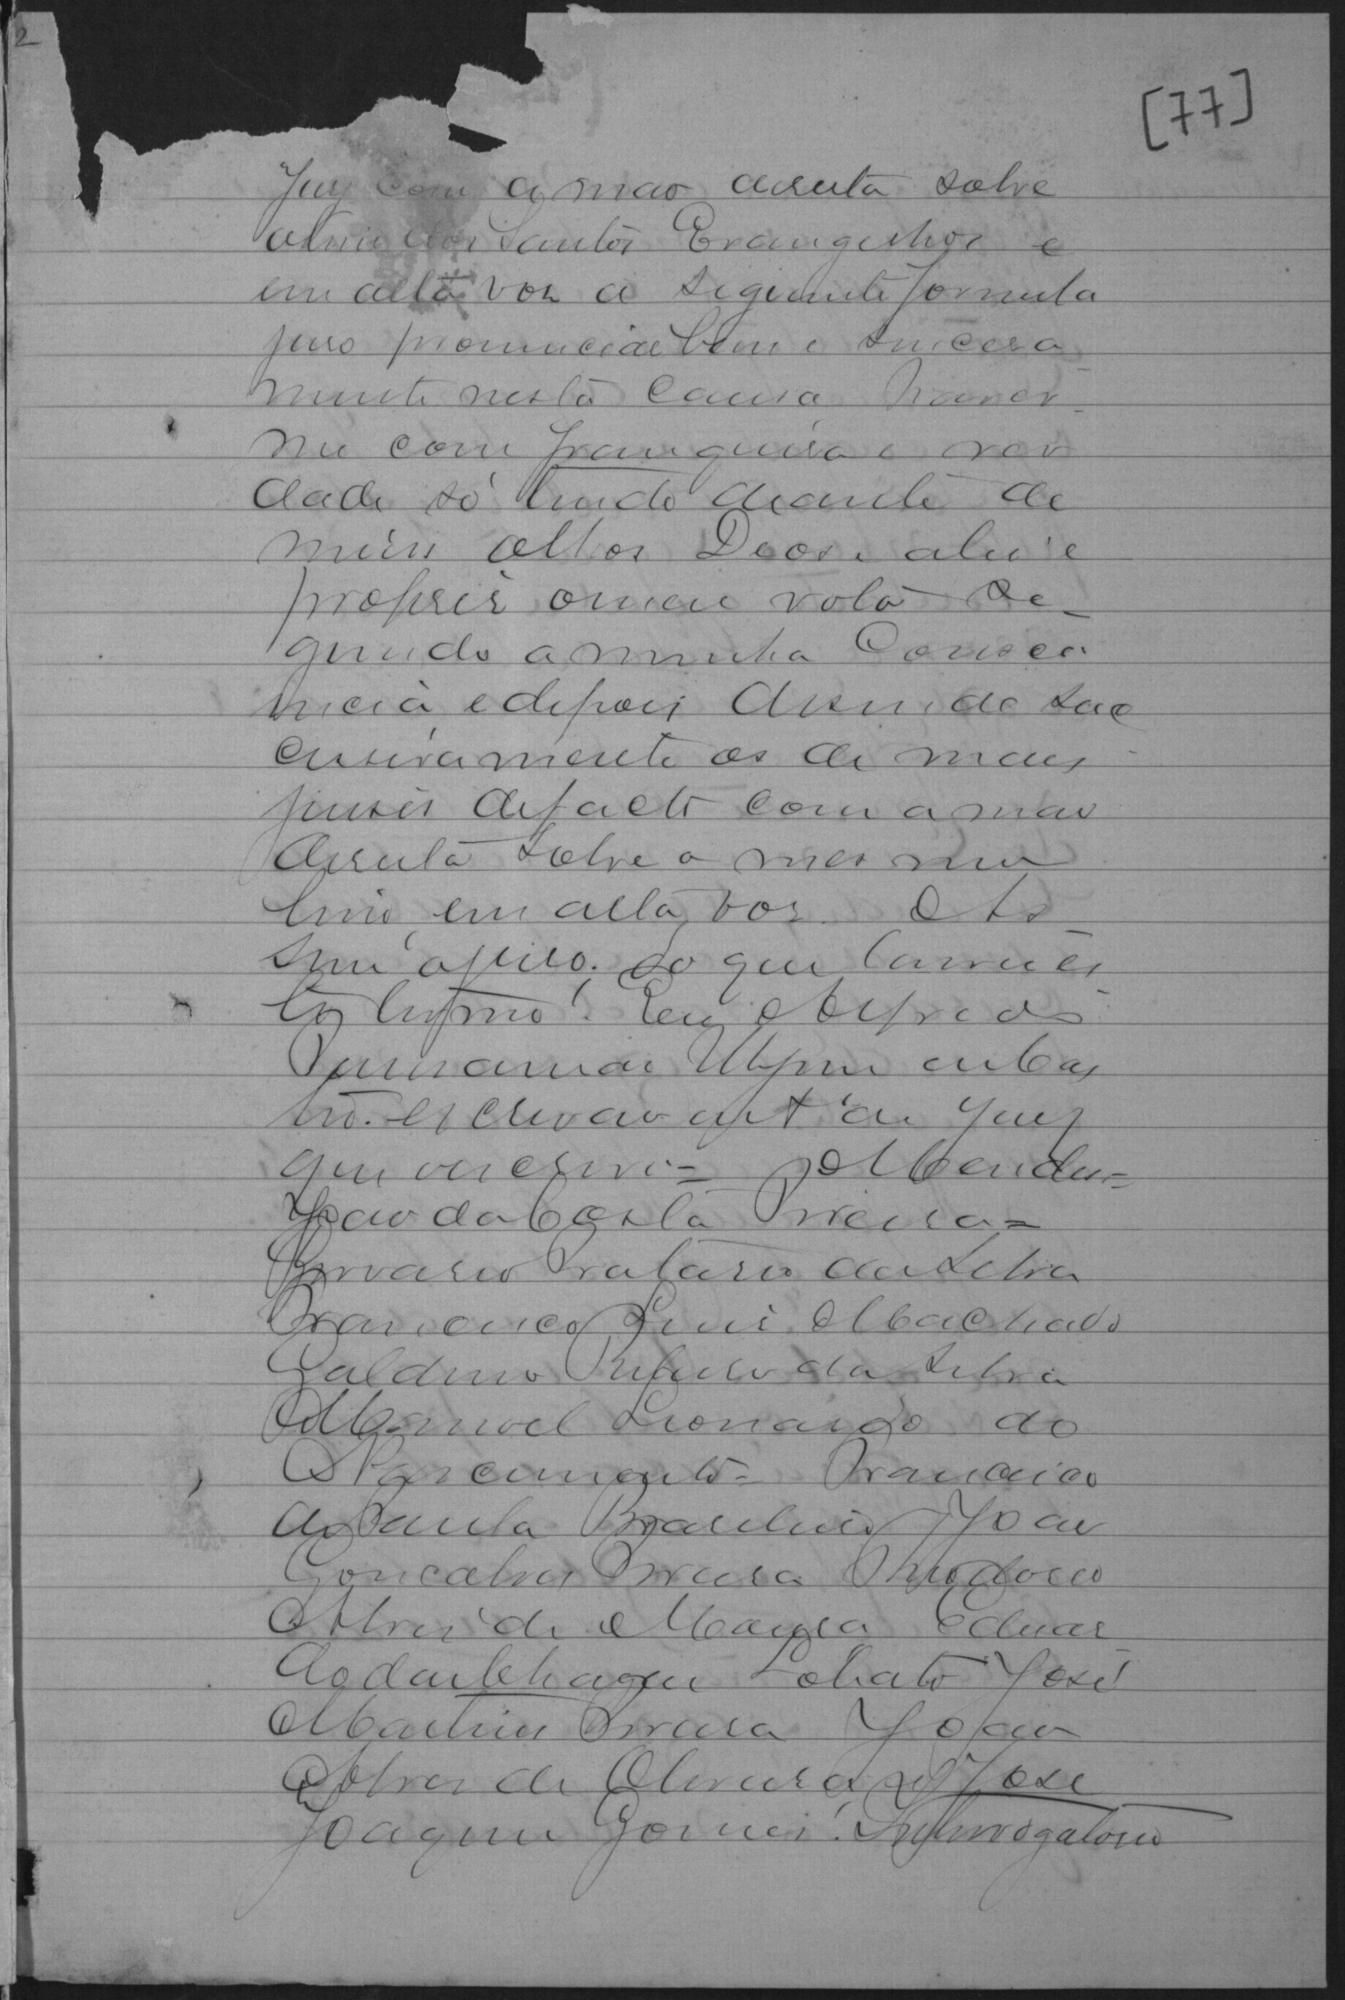 2
[77]
Juiz com a mao direita sobre
o livro dos Santos Evangelhos e
em alta voz a siguinte formula
juro pronunciar bem e sincera
mente nesta causa haver
me com franquesa e ver
dade só tendo diante de
meus olhos Deos e a lei e
proferir o meu voto se-
guindo a minha Conscen
incia e depois disendo suc
cusivamente os de mais
juises de facto com a mao
direita sobre o mesmo
livro em alta voz. As
sim o juro. do que lavrei es
te termo. Eu Alfredo
escrivao do Jury
que o escrevi =
Joao da Costa Pereira =
Gervasio da Silva
Francisco Luis Machado
Galdino Rufino da Silva
Manoel Leonardo do
Nascimento = Francisco
de Paula Brasileiro Joao
Goncalves Pereira Theodosio
Alves de Moura Eduar
do das Chagas Lobato José
Martins Pereira Joao
Alves de Oliveira José
Joaquim Gomes. Interrogatorio